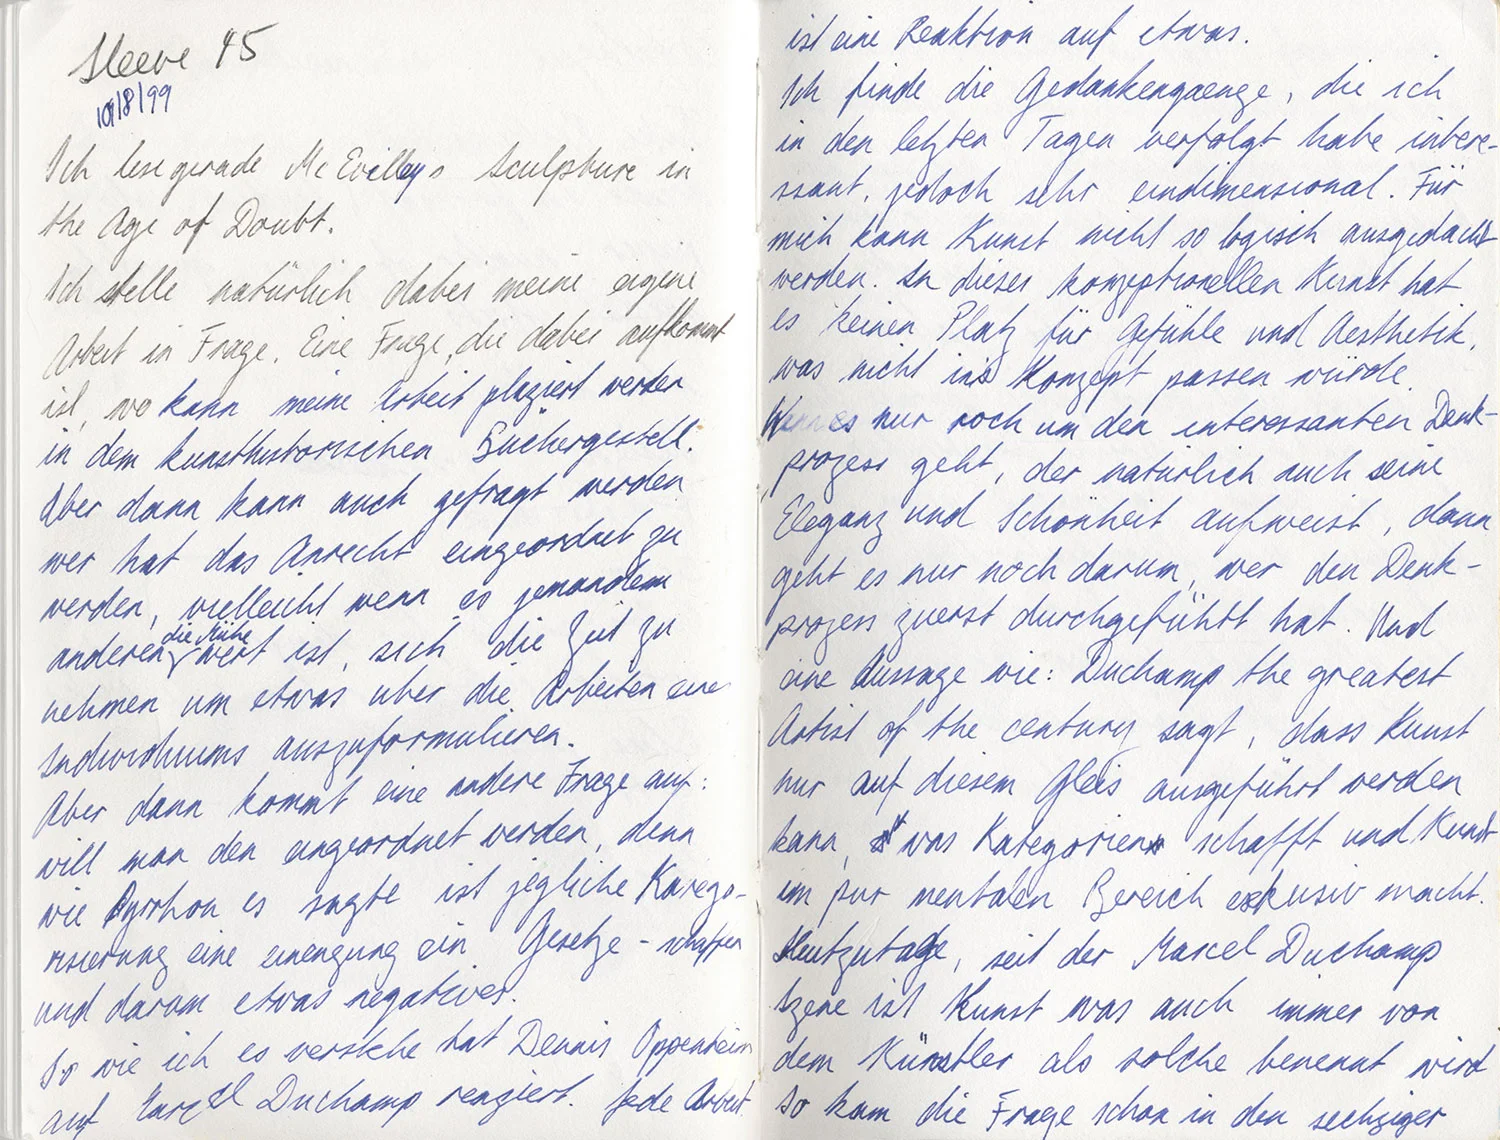 Sleeve 45
10/8/99
Ich lese gerade Mc Evilleys Sculpture in
the Age of Doubt.
Ich stelle natürlich dabei meine eigene
Arbeit in Frage. Eine Frage, die dabei aufkommt
ist, wo kann meine Arbeit plaziert werden
in dem kunsthistorischen Büchergestell.
Aber dann kann auch gefragt werden
wer hat das Anrecht eingeordnet zu
werden, vielleicht wenn es jemandem
die Mühe
anderen wert ist, sich die Zeit zu
nehmen um etwas über die Arbeiten eines
Individuums auszuformulieren.
Aber dann kommt eine andere Frage auf:
will man den eingeordnet werden, denn
wie Pyrrhon es sagte ist jegliche Katego-
risierung eine einengung ein Gesetze-schaffen
und darum etwas negatives.
So wie ich es verstehe hat Dennis Oppenheim
auf Marcel Duchamp reagiert. Jede Arbeit
ist eine Reaktion auf etwas.
Ich finde die Gedankengaenge, die ich
in den letzten Tagen verfolgt habe intere-
ssant, jedoch sehr eindimensional. Für
mich kann Kunst nicht so logisch ausgedacht
werden. In dieser konzeptionellen Kunst hat
es keinen Platz für Gefühle und Aesthetik,
was nicht ins Konzept passen würde.
Wenn es nur noch um den interessanten Denk-
prozess geht, der natürlich auch seine
Eleganz und Schönheit aufweist, dann
geht es nur noch darum, wer den Denk-
prozess zuerst durchgeführt hat. Und
eine Aussage wie: Duchamp the greatest
Artist of the century sagt, dass Kunst
nur auf diesem Gleis ausgeführt werden
kann, was Kategorien schafft und Kunst
im pur mentalen Bereich exklusiv macht.
Heutzutage, seit der Marcel Duchamp
Szene ist Kunst was auch immer von
dem Künstler als solche benennt wird
So kam die Frage schon in den sechziger